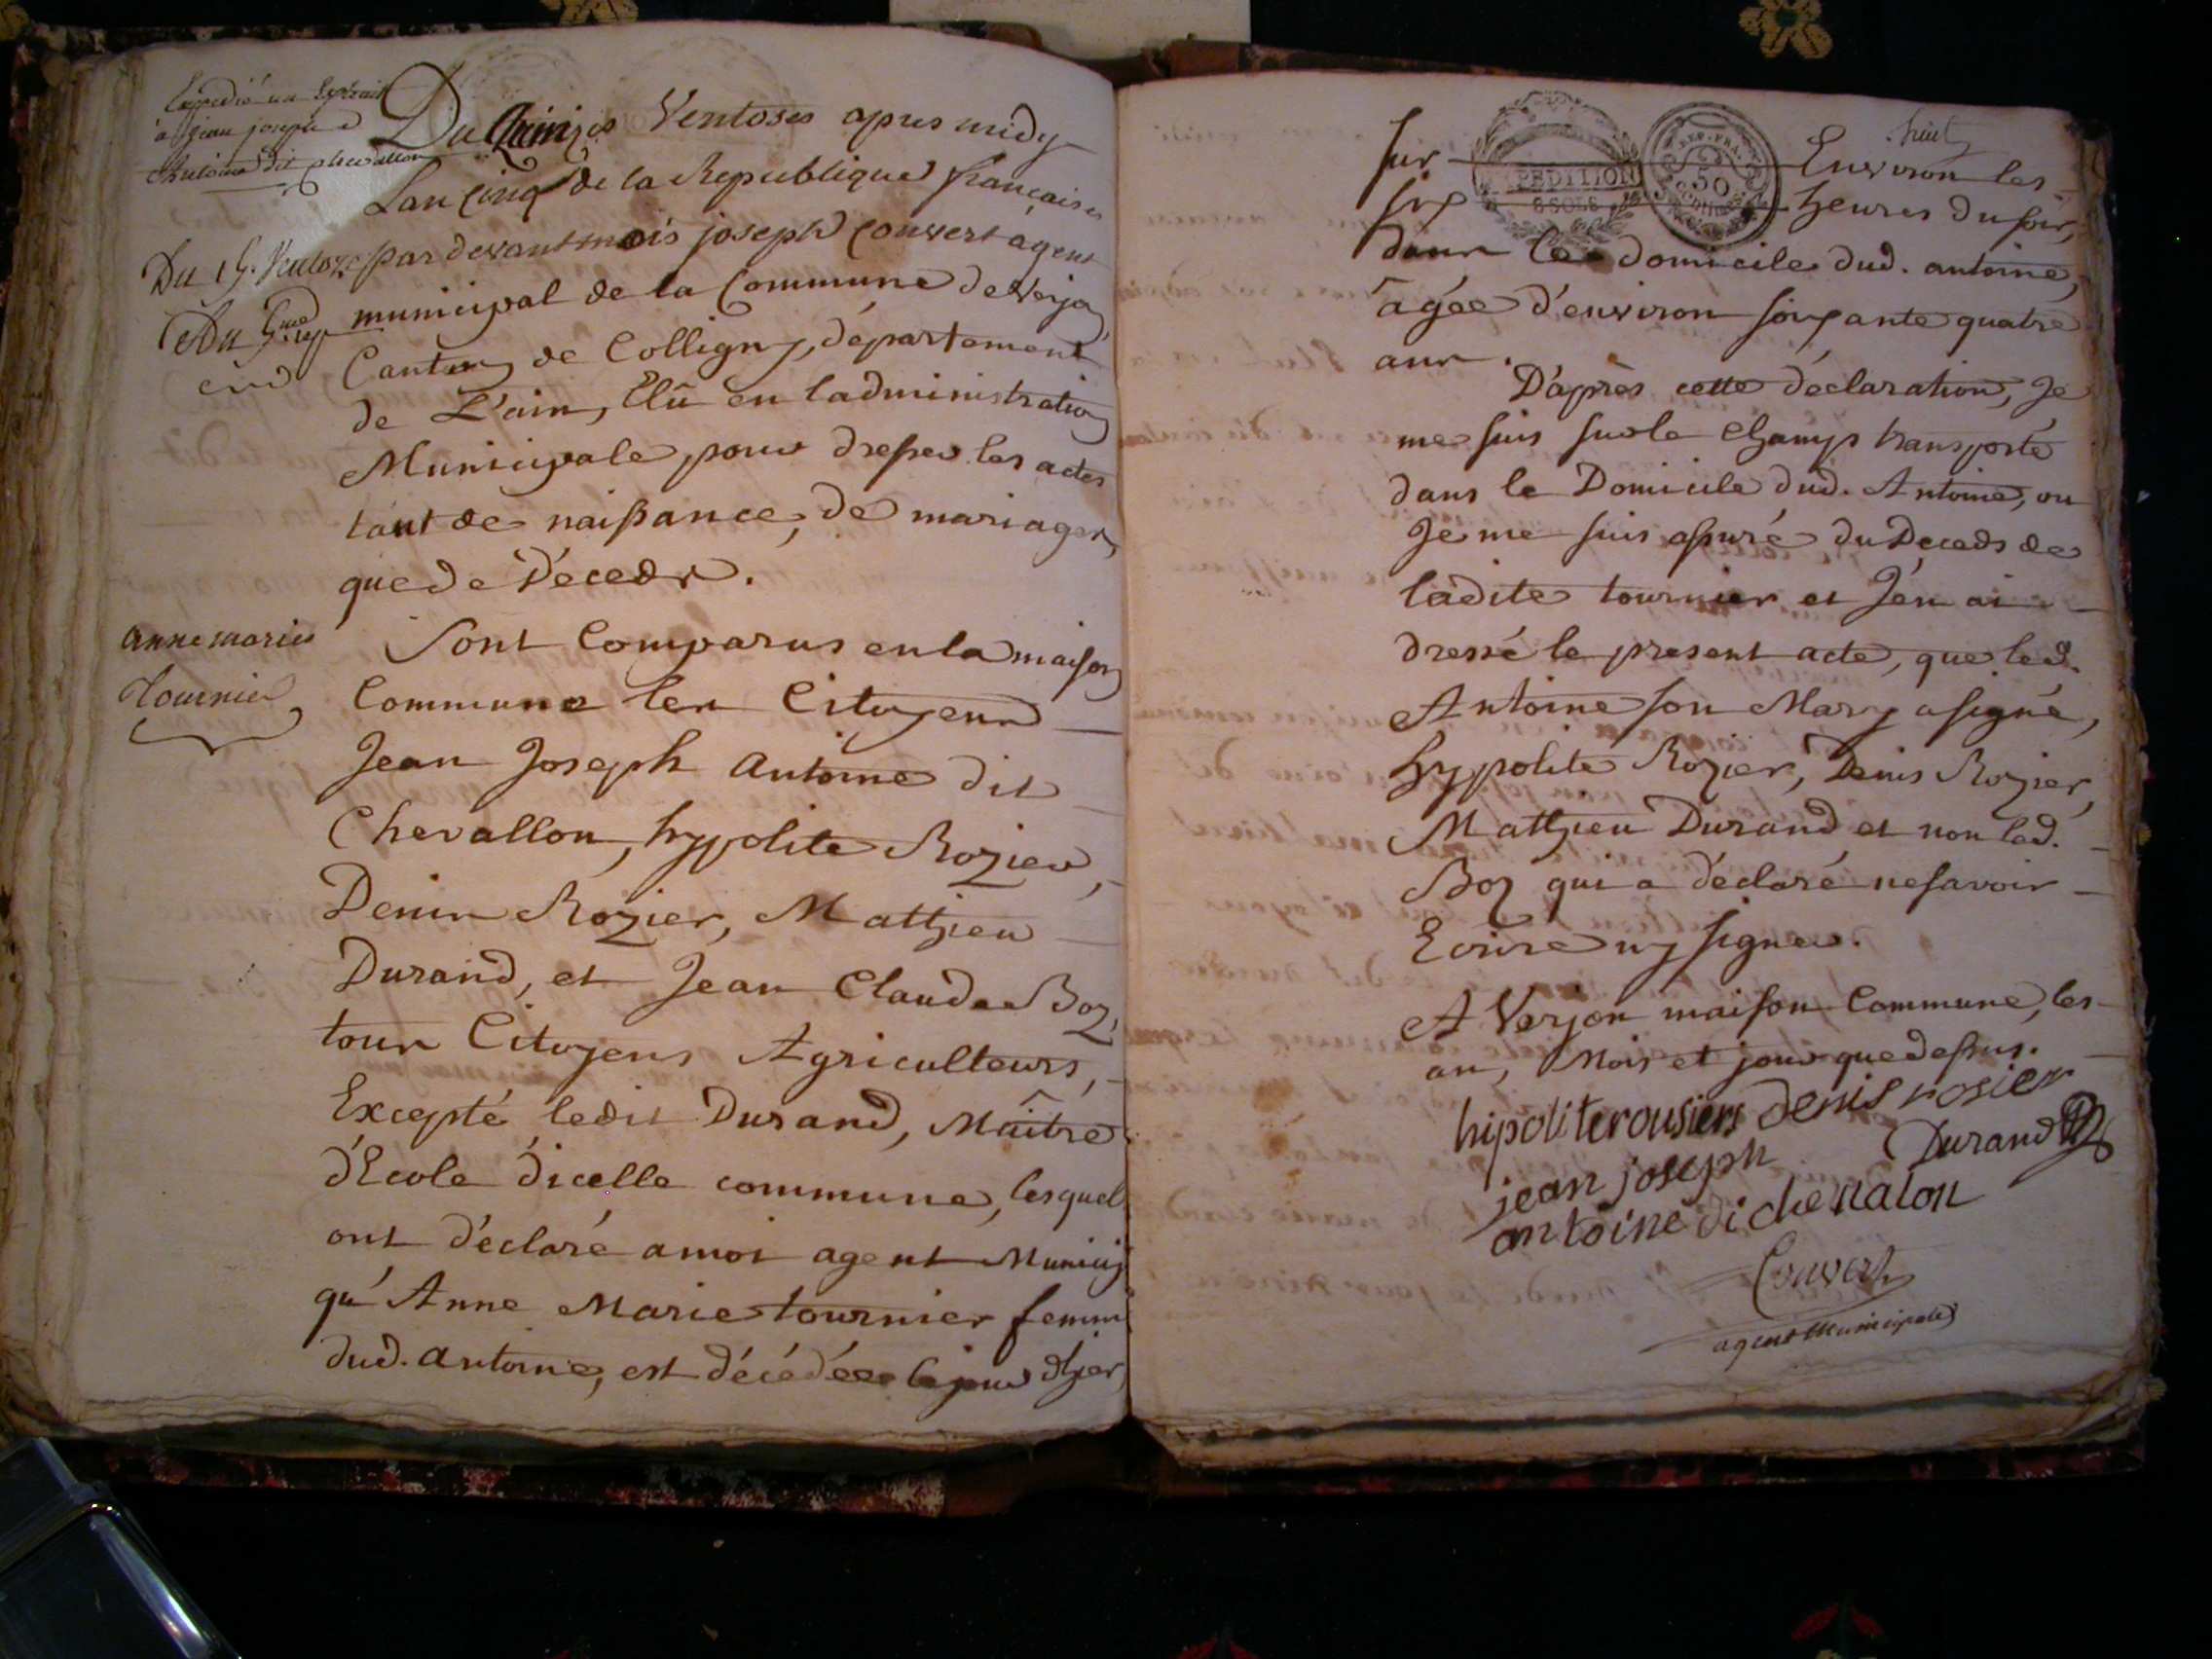 Expedié un Extrait
a jean joseph
Antoine dit chevallon
Du Quinze Ventose apres midy
Lan Cinq de la Republique française
Du 15. Ventoze
par devant mois joseph Convert agent
An 5me rep
municipal de la Commune de Verjon
Canton de Colligny, département
de L'ain, Elû en Ladministration
Municipale pour dresser les actes
tant de naissance, de mariages,
que de Décedr.
anne marie
Tournier
Sont Comparus en la maison
Commune les Citoyens
Jean Joseph Antoine dit
Chevallon, hyppolite Rozier,
Denis Rozier, Matthieu
Durand, et Jean Claude Boz,
tous Citoyens Agriculteurs,
Excepté ledit Durand, Maître
d'Ecole d'icelle commune, lesquel
ont déclaré a moi agent Municip
qu'Anne Marie tournier femm
dud. antoine, est décédée le jour d'hier,
huit
sur Environ les
EXPEDITION
6 SOLS
REP. FRA.
50
CENTIMES
six heures du soir,
dans le domicile dud. antoine,
agée d'environ soixante quatre
ans.
D'après cette déclaration, Je
me suis sur le champs transporté
dans le Domicile dud. Antoine, ou
Je me suis assuré du Deceds de
ladite tournier et J'en ai
dressé le present acte, que led.
Antoine son Mary a signé,
hyppolite Rozier, Denis Rozier,
Matthieu Durand et non led.
Boz qui a déclaré ne savoir
Ecrire ny signer.
A Verjon maison Commune, les
an, Mois et jour que dessus.
hipolite rousiers denis rosier
jean joseph Durand
antoine di chevalon
Convert
agent Municipale